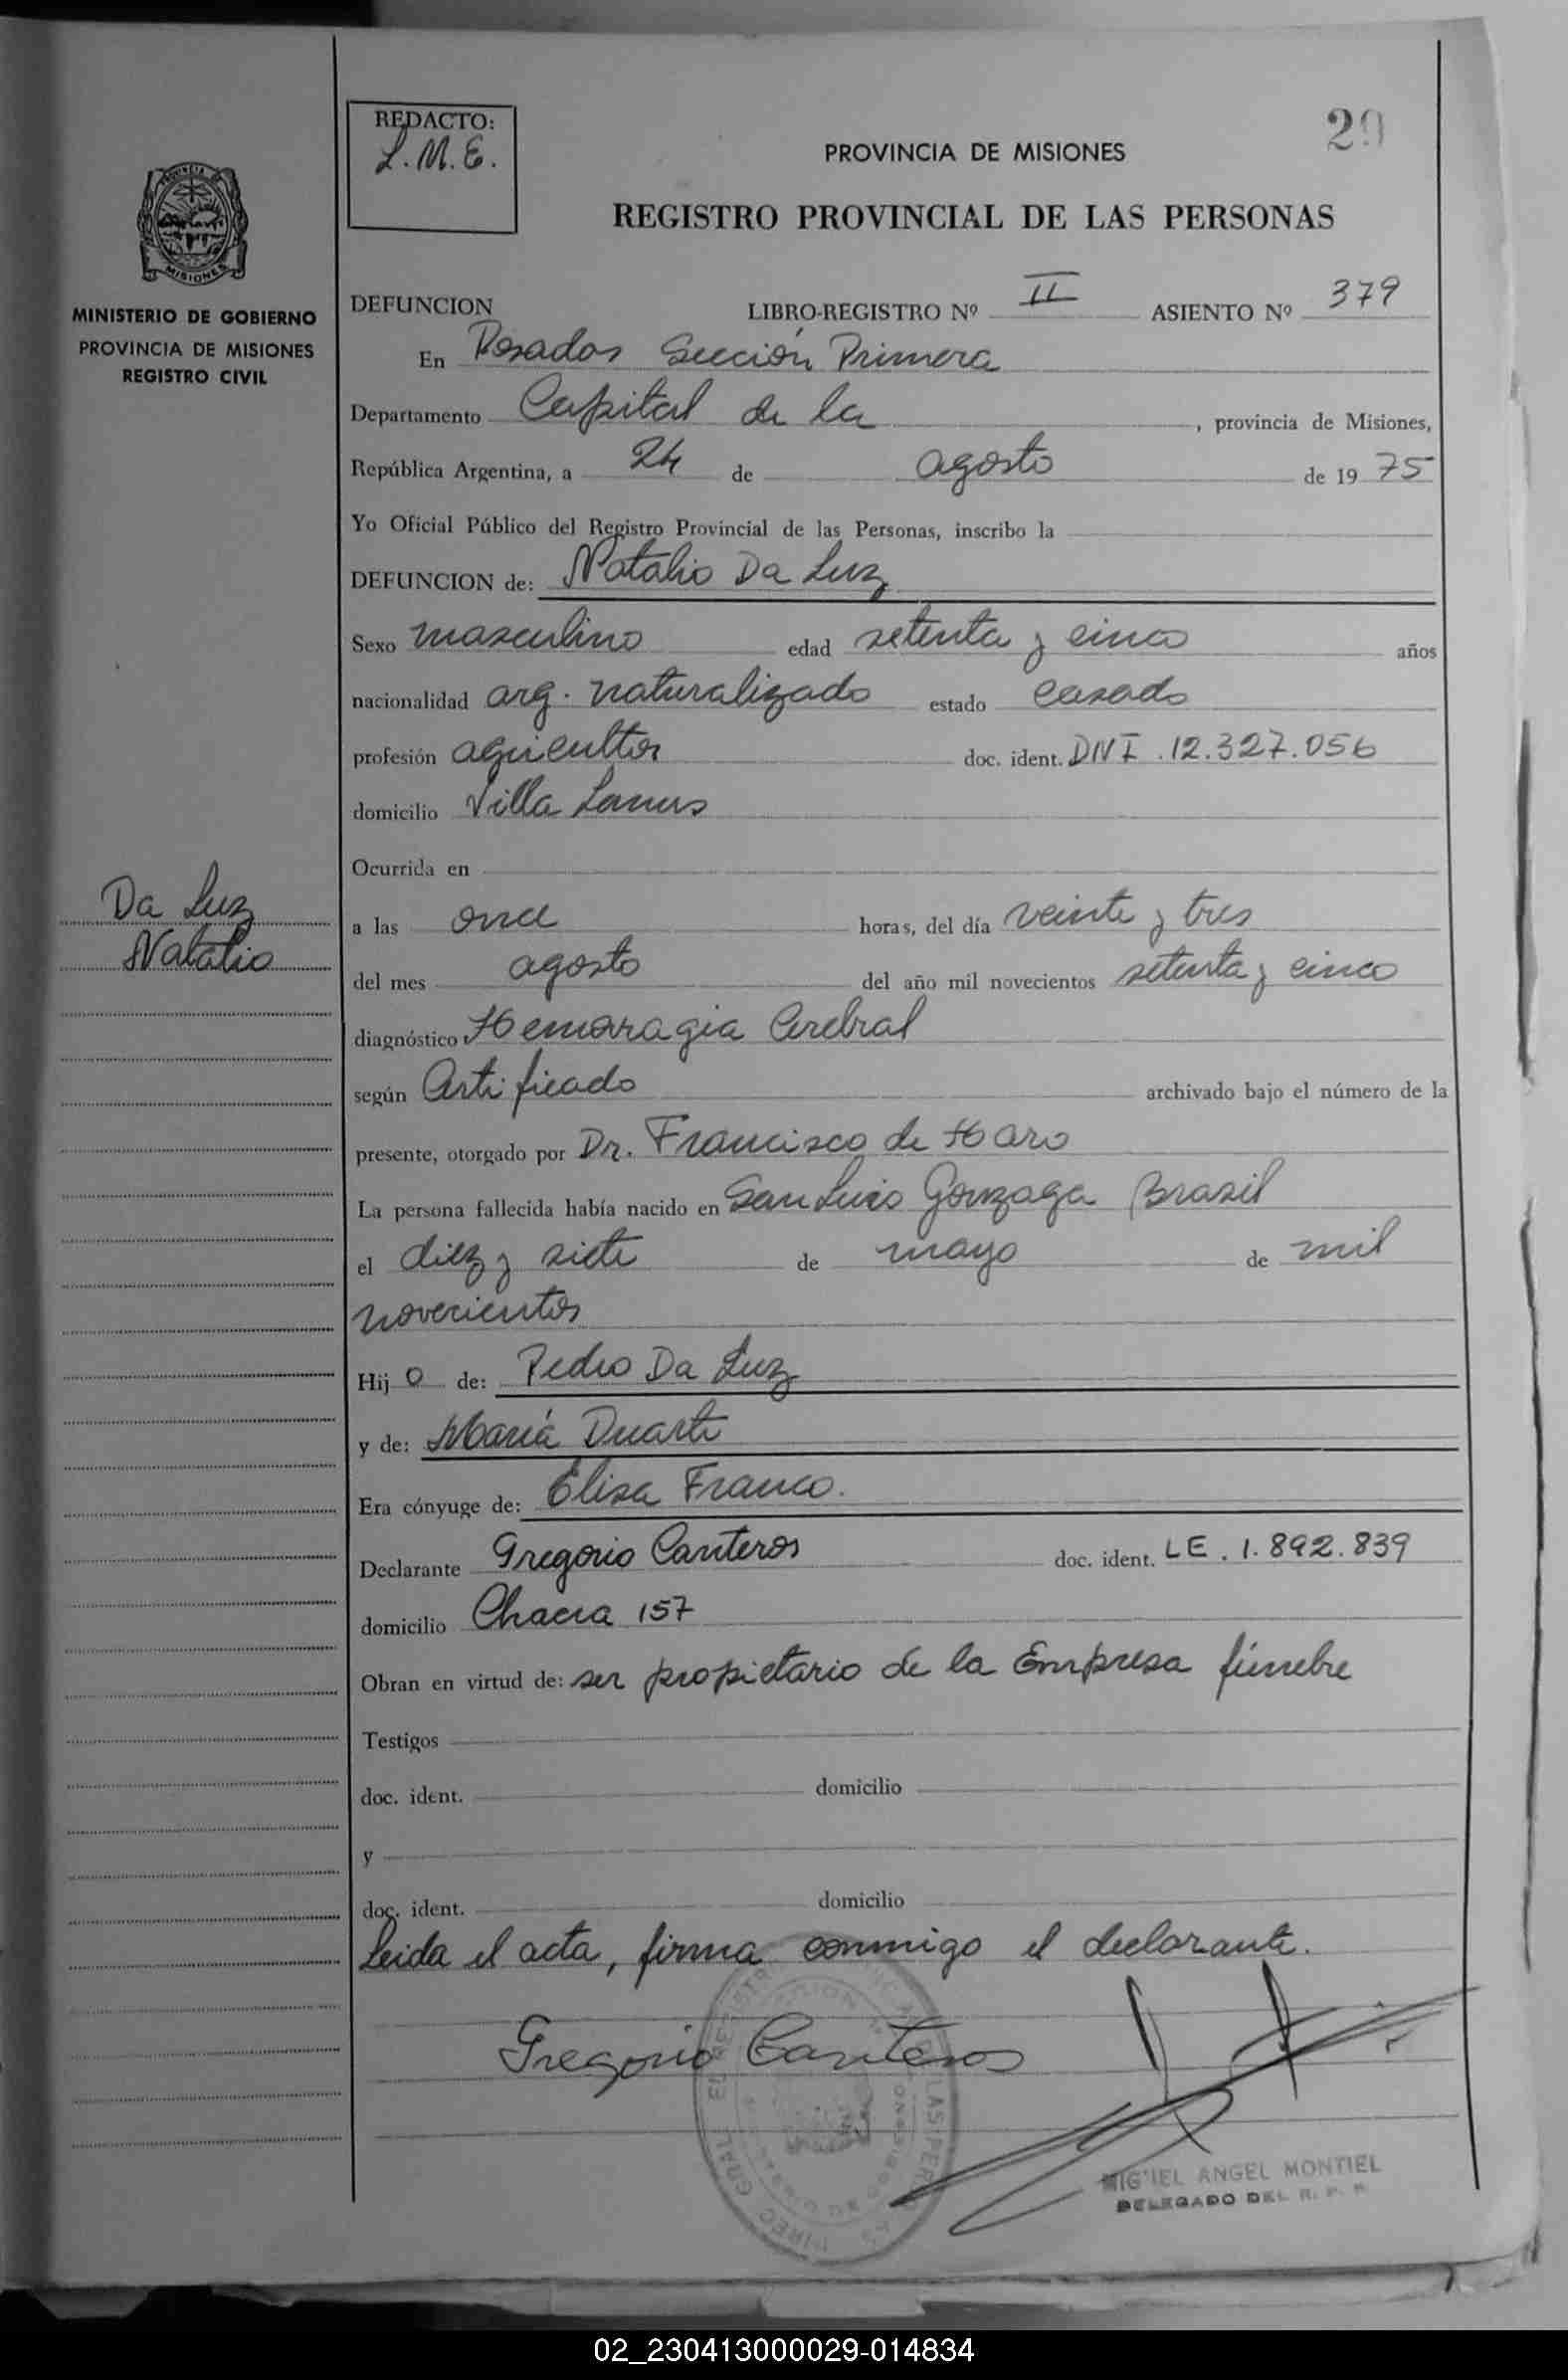 REDACTO:
L.M.E.
29
PROVINCIA DE MISIONES
REGISTRO PROVINCIAL DE LAS PERSONAS
MISIONES
MINISTERIO DE GOBIERNO
PROVINCIA DE MISIONES
REGISTRO CIVIL
DEFUNCION LIBRO-REGISTRO Nº II ASIENTO Nº 379
En Posadas Sección Primera
Departamento Capital de la , provincia de Misiones,
República Argentina, a 24 de agosto de 19 75
Yo Oficial Público del Registro Provincial de las Personas, inscribo la
DEFUNCION de: Natalio Da Luz
Sexo masculino edad setenta y cinco años
nacionalidad arg. naturalizado estado casado
profesión agricultor doc. ident. DNI. 12.327.056
domicilio Villa Lanus
Ocurrida en
Da Luz
Natalio
a las once horas, del día veinte y tres
del mes agosto del año mil novecientos setenta y cinco
diagnóstico Hemorragia Cerebral
según Certificado archivado bajo el número de la
presente, otorgado por Dr. Francisco de Haro
La persona fallecida había nacido en San Luis Gonzaga Brasil
el diez y siete de mayo de mil
novecientos
Hij o de: Pedro Da Luz
y de: María Duarte
Era cónyuge de: Elisa Franco.
Declarante Gregorio Canteros doc. ident. LE. 1.892.839
domicilio Chacra 157
Obran en virtud de: ser propietario de la Empresa fúnebre
Testigos
doc. ident. domicilio
y
doc. ident. domicilio
Leida el acta, firma conmigo el declarante.
Gregorio Canteros
MIGUEL ANGEL MONTIEL
DELEGADO DEL R. P. P.
02_230413000029-014834